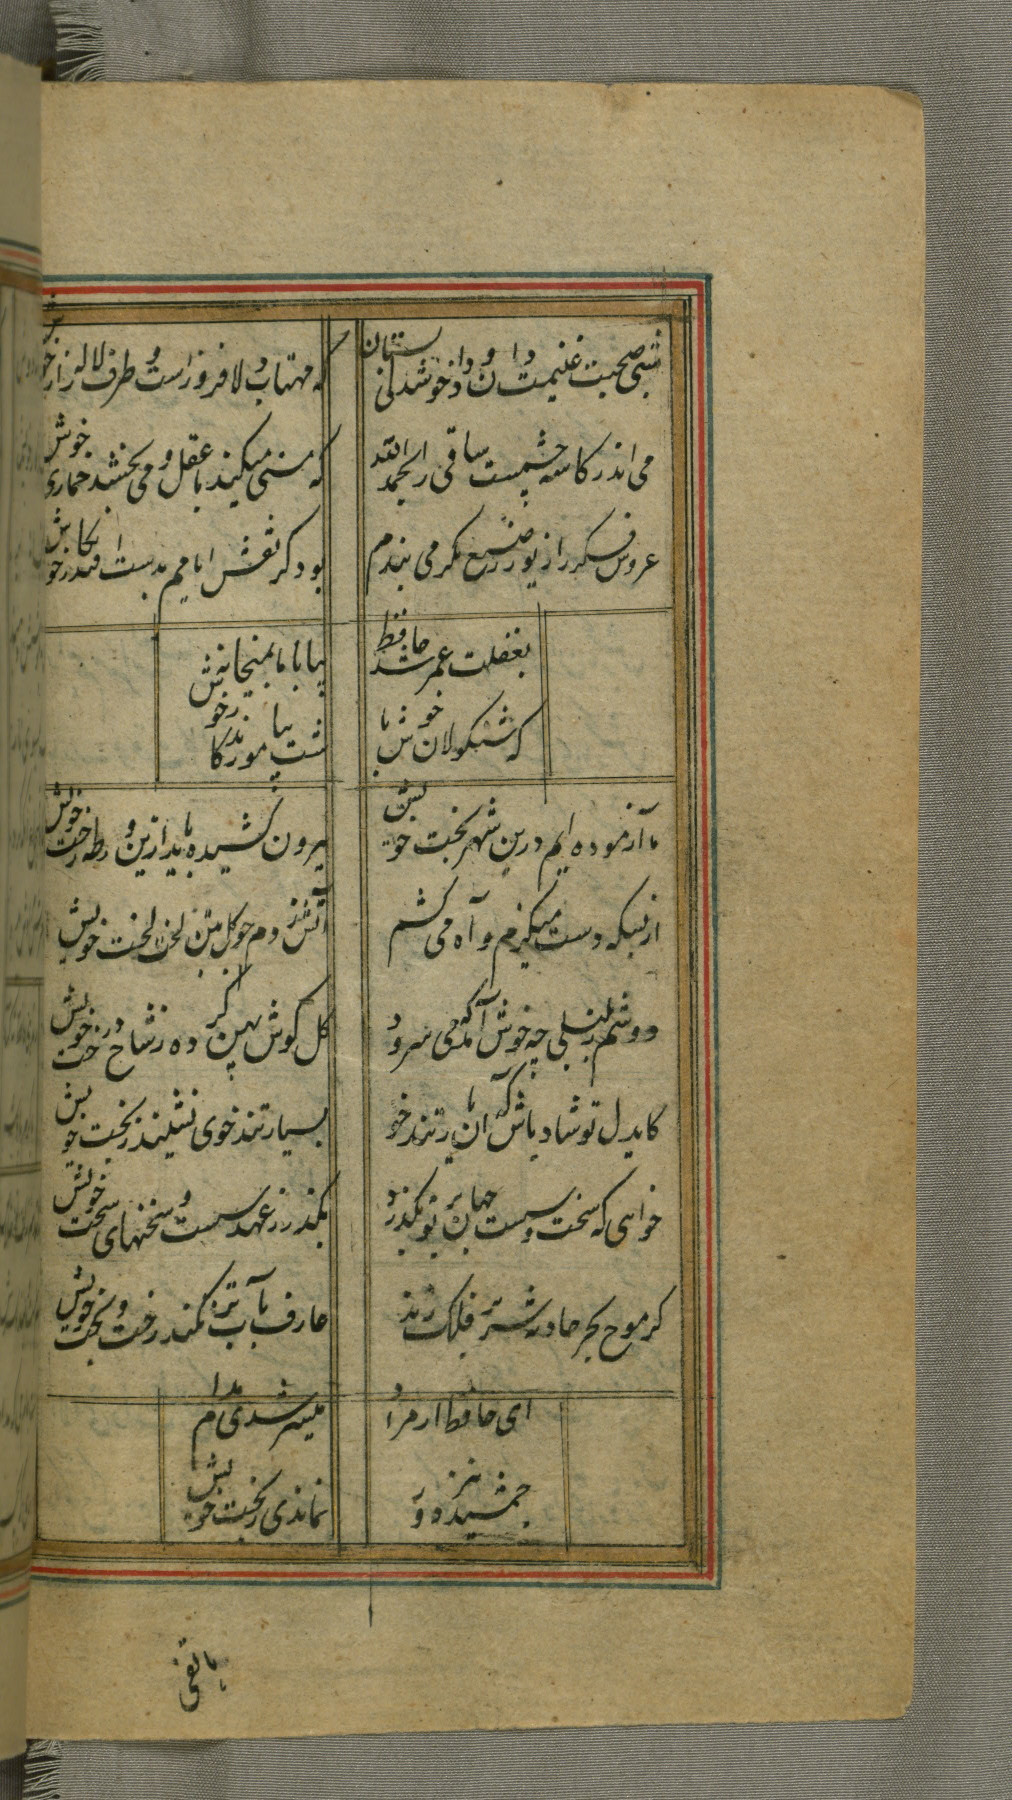 شبی صحبت غنیمت دان و داد خوشدلی بستان
که مهتاب دلافروزاست و طرف لاله زار خوش
می اندر کاسه چشمست ساقی را بحمدالله
که مستی میکند با عقل و می بخشد خماری خوش
عروس فکر را زیور ز طبع بکر می بندم
بود کز نقش ایامم بدست افتد نکار خوش
بغفلت عمر شد حافظ
بیا با ما بمیخانه
که شنکولان خوش باش
بیاموزند کار خوش
ما آزموده ایم درین شهر بخت خویش
بیرون کشید باید ازین ورطه رخت خویش
از بسکه دست میکزم و آه می کشم
آتش زدم چو کل بتن لخت لخت خویش
دوشم ز بلبلی چه خوش آمد که می سرود
کل کوش پهن کرده ز شاخ درخت خویش
کایدل تو شاد باش که آن یار تندخو
بسیار تند خوی نشیند ز بخت خویش
خواهی که سخت و سست جهان بر تو بکذرد
بکذر ز عهد سست و سخنهای سخت خویش
کر موج بحر حادثه سر بر فلک زند
عارف بآب تر نکند رخت و بخت خویش
ای حافظ ار مراد
میسر شدی مدام
جمشید نیز
نماندی ز بخت خویش
هاتفی